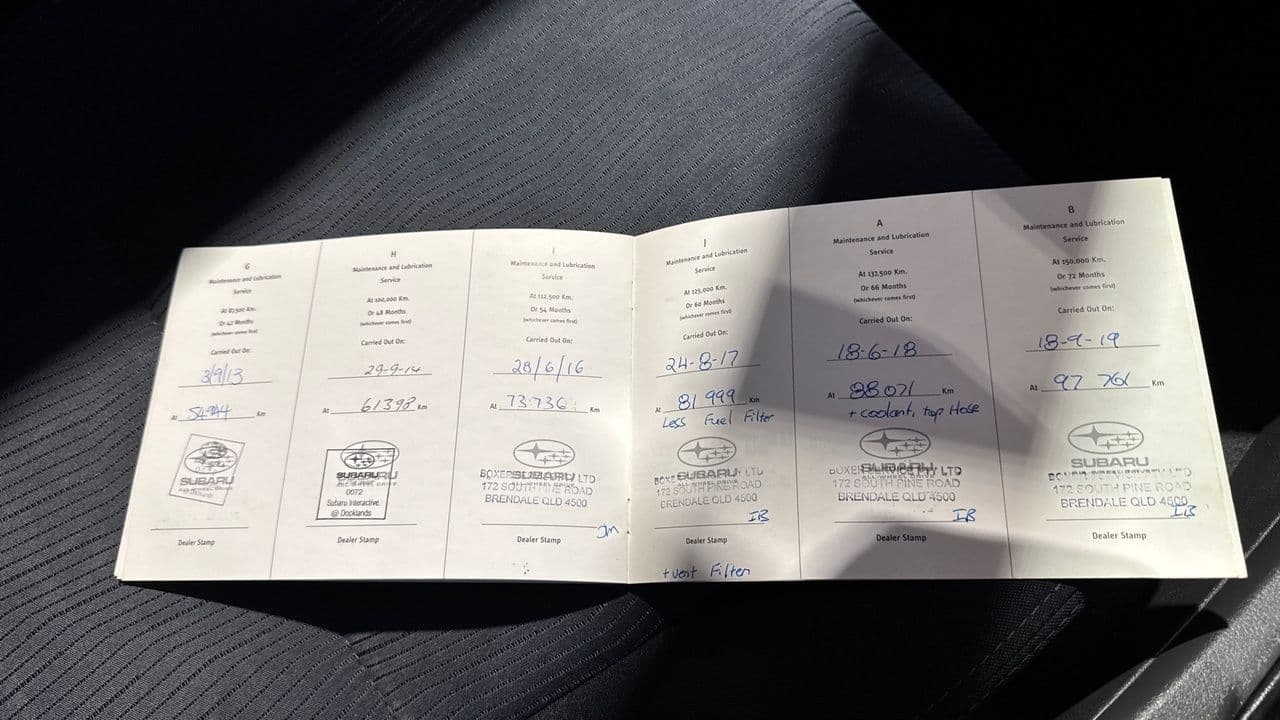 G
Maintenance and Lubrication
Service
At 87,500 Km.
Or 42 Months
(whichever comes first)
Carried Out On:
3/9/13
At 54944 Km
SUBARU
Dealer Stamp
H
Maintenance and Lubrication
Service
At 100,000 Km.
Or 48 Months
(whichever comes first)
Carried Out On:
29-9-14
At 61398 Km
SUBARU
0072
Subaru Interactive
@ Docklands
Dealer Stamp
I
Maintenance and Lubrication
Service
At 112,500 Km.
Or 54 Months
(whichever comes first)
Carried Out On:
28/6/16
At 73736 Km
SUBARU
BOXER LTD
172 SOUTH PINE ROAD
BRENDALE QLD 4500
Jm
Dealer Stamp
J
Maintenance and Lubrication
Service
At 125,000 Km.
Or 60 Months
(whichever comes first)
Carried Out On:
24-8-17
At 81 999 Km
Less Fuel Filter
SUBARU
BOXER LTD
172 SOUTH PINE ROAD
BRENDALE QLD 4500
IB
Dealer Stamp
+ vent Filter
A
Maintenance and Lubrication
Service
At 137,500 Km.
Or 66 Months
(whichever comes first)
Carried Out On:
18-6-18
At 88071 Km
+ coolant, top Hose
SUBARU
BOXER SERVICE PTY LTD
172 SOUTH PINE ROAD
BRENDALE QLD 4500
IB
Dealer Stamp
B
Maintenance and Lubrication
Service
At 150,000 Km.
Or 72 Months
(whichever comes first)
Carried Out On:
18-9-19
At 97 761 Km
SUBARU
172 SOUTH PINE ROAD
BRENDALE QLD 4500
IB
Dealer Stamp